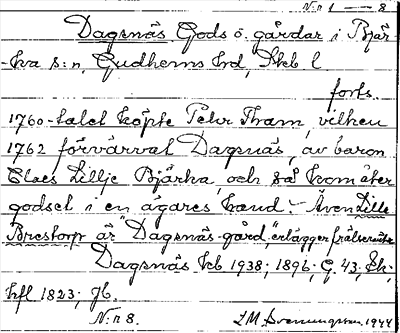 N:r 1 — 8
Dagsnäs Gods o. gårdar i Bjär-
-ka s:n, Gudhems hd, Skb l
forts.
1760-talet köpte Pehr Tham, vilken
1762 förvärvat Dagsnäs, av baron
Claes Lillje Bjärka, och så kom åter
godset i en ägares hand. - Även Lille
Brestorp är "Dagsnäs-gård", erlägger frälseränta
Dagsnäs kb 1938; 1896; G. 43, Sk;
hfl 1823; Jb.
N:r 8. I M Svenningson 1944